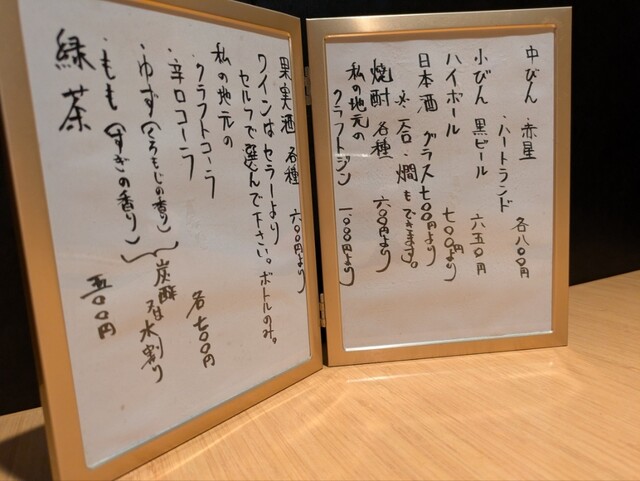 中びん 赤星
・ハートランド 各八〇〇円
小びん 黒ビール 六五〇円
ハイボール 七〇〇円より
日本酒 グラス七〇〇円より
※一合・燗もできます。
焼酎 各種 六〇〇円より
私の地元の
クラフトジン 一、〇〇〇円より
果実酒 各種 六〇〇円より
ワインはセラーより
セルフで選んで下さい。ボトルのみ。
私の地元の
・クラフトコーラ
・辛口コーラ 各七〇〇円
・ゆず(くろもじの香り)
・もも(すぎの香り) 炭酸 又は 水割り
緑茶 五〇〇円